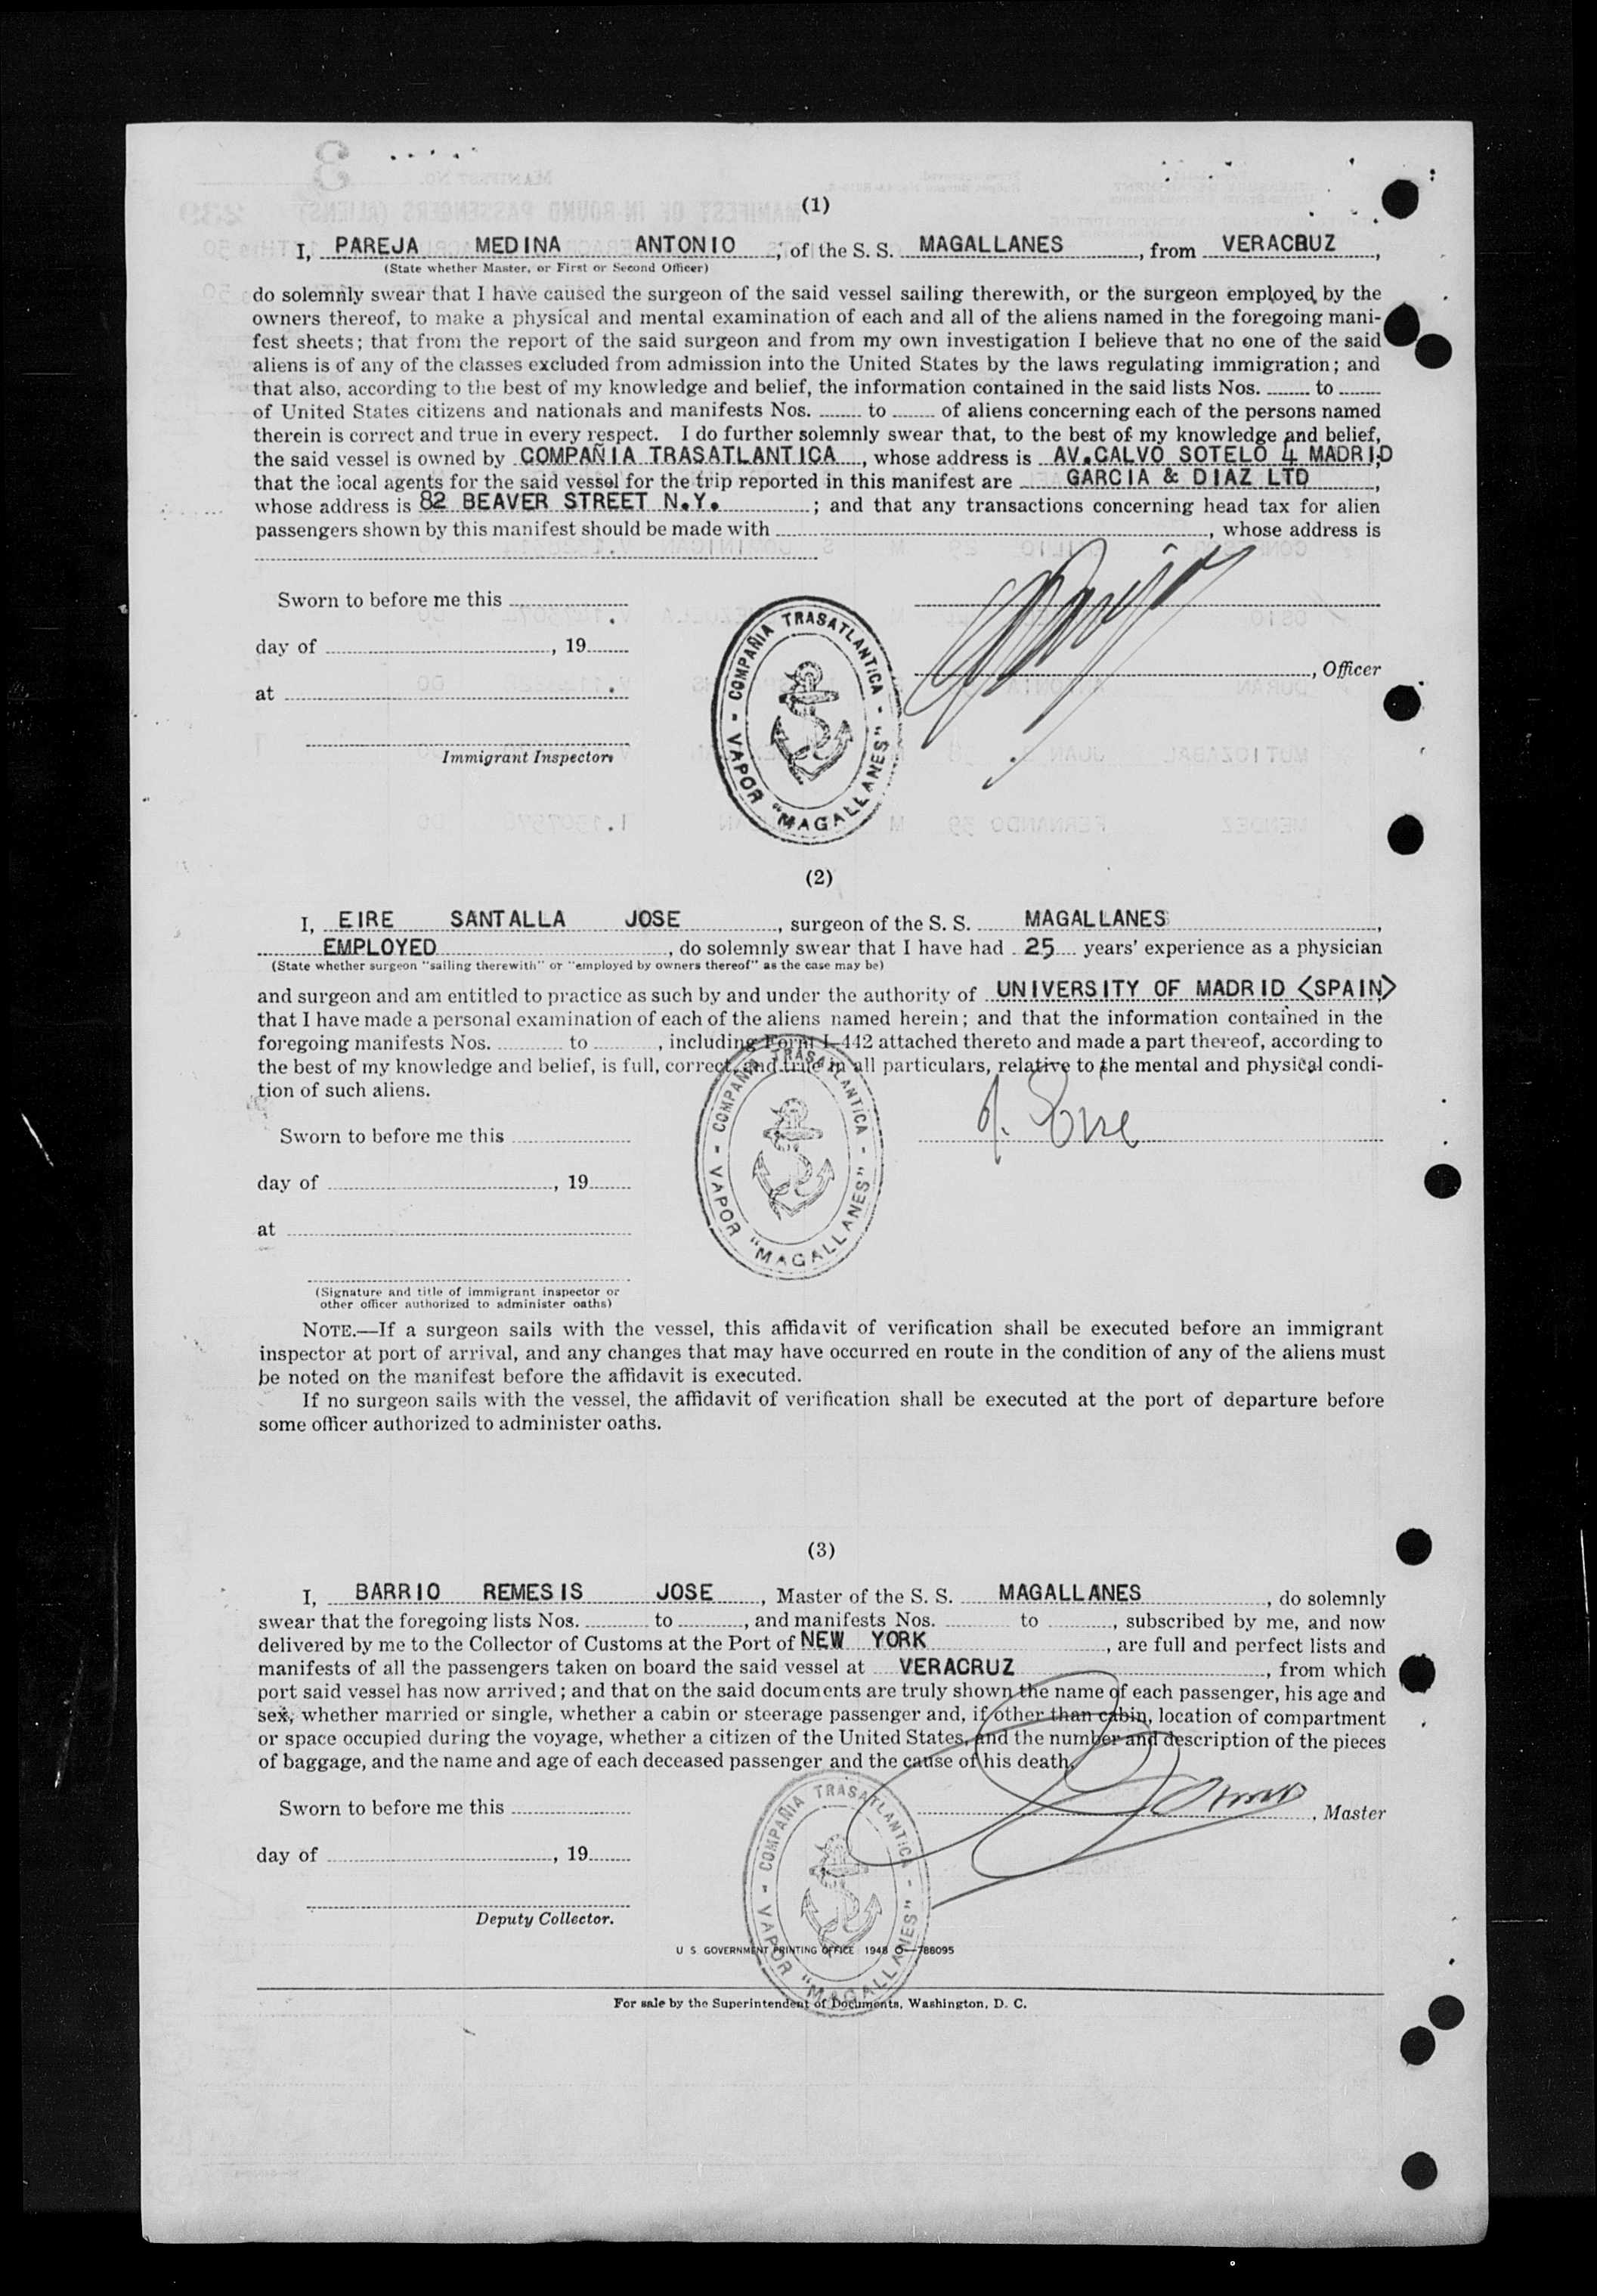 (1)
I, PAREJA MEDINA ANTONIO, of the S. S. MAGALLANES, from VERACRUZ,
(State whether Master, or First or Second Officer)
do solemnly swear that I have caused the surgeon of the said vessel sailing therewith, or the surgeon employed by the
owners thereof, to make a physical and mental examination of each and all of the aliens named in the foregoing mani-
fest sheets; that from the report of the said surgeon and from my own investigation I believe that no one of the said
aliens is of any of the classes excluded from admission into the United States by the laws regulating immigration; and
that also, according to the best of my knowledge and belief, the information contained in the said lists Nos. ........ to ........
of United States citizens and nationals and manifests Nos. ........ to ........ of aliens concerning each of the persons named
therein is correct and true in every respect. I do further solemnly swear that, to the best of my knowledge and belief,
the said vessel is owned by COMPAÑIA TRASATLANTICA, whose address is AV.CALVO SOTELO 4 MADRID
that the local agents for the said vessel for the trip reported in this manifest are GARCIA & DIAZ LTD,
whose address is 82 BEAVER STREET N.Y. ; and that any transactions concerning head tax for alien
passengers shown by this manifest should be made with ........, whose address is
Sworn to before me this ........
day of ........, 19....
, Officer
at ........
Immigrant Inspector
COMPAÑIA TRASATLANTICA - VAPOR "MAGALLANES" -
(2)
I, EIRE SANTALLA JOSE, surgeon of the S. S. MAGALLANES,
EMPLOYED, do solemnly swear that I have had 25 years' experience as a physician
(State whether surgeon "sailing therewith" or "employed by owners thereof" as the case may be)
and surgeon and am entitled to practice as such by and under the authority of UNIVERSITY OF MADRID <SPAIN>
that I have made a personal examination of each of the aliens named herein; and that the information contained in the
foregoing manifests Nos. ........ to ........, including Form I-442 attached thereto and made a part thereof, according to
the best of my knowledge and belief, is full, correct, and true in all particulars, relative to the mental and physical condi-
tion of such aliens.
Sworn to before me this ........
J. Eire
day of ........, 19....
at ........
COMPAÑIA TRASATLANTICA - VAPOR "MAGALLANES" -
(Signature and title of immigrant inspector or
other officer authorized to administer oaths)
NOTE.—If a surgeon sails with the vessel, this affidavit of verification shall be executed before an immigrant
inspector at port of arrival, and any changes that may have occurred en route in the condition of any of the aliens must
be noted on the manifest before the affidavit is executed.
If no surgeon sails with the vessel, the affidavit of verification shall be executed at the port of departure before
some officer authorized to administer oaths.
(3)
I, BARRIO REMESIS JOSE, Master of the S. S. MAGALLANES, do solemnly
swear that the foregoing lists Nos. ........ to ........, and manifests Nos. ........ to ........, subscribed by me, and now
delivered by me to the Collector of Customs at the Port of NEW YORK, are full and perfect lists and
manifests of all the passengers taken on board the said vessel at VERACRUZ, from which
port said vessel has now arrived; and that on the said documents are truly shown the name of each passenger, his age and
sex, whether married or single, whether a cabin or steerage passenger and, if other than cabin, location of compartment
or space occupied during the voyage, whether a citizen of the United States, and the number and description of the pieces
of baggage, and the name and age of each deceased passenger and the cause of his death.
Sworn to before me this ........
, Master
day of ........, 19....
COMPAÑIA TRASATLANTICA - VAPOR "MAGALLANES" -
Deputy Collector.
U S GOVERNMENT PRINTING OFFICE 1948 O—786095
For sale by the Superintendent of Documents, Washington, D. C.